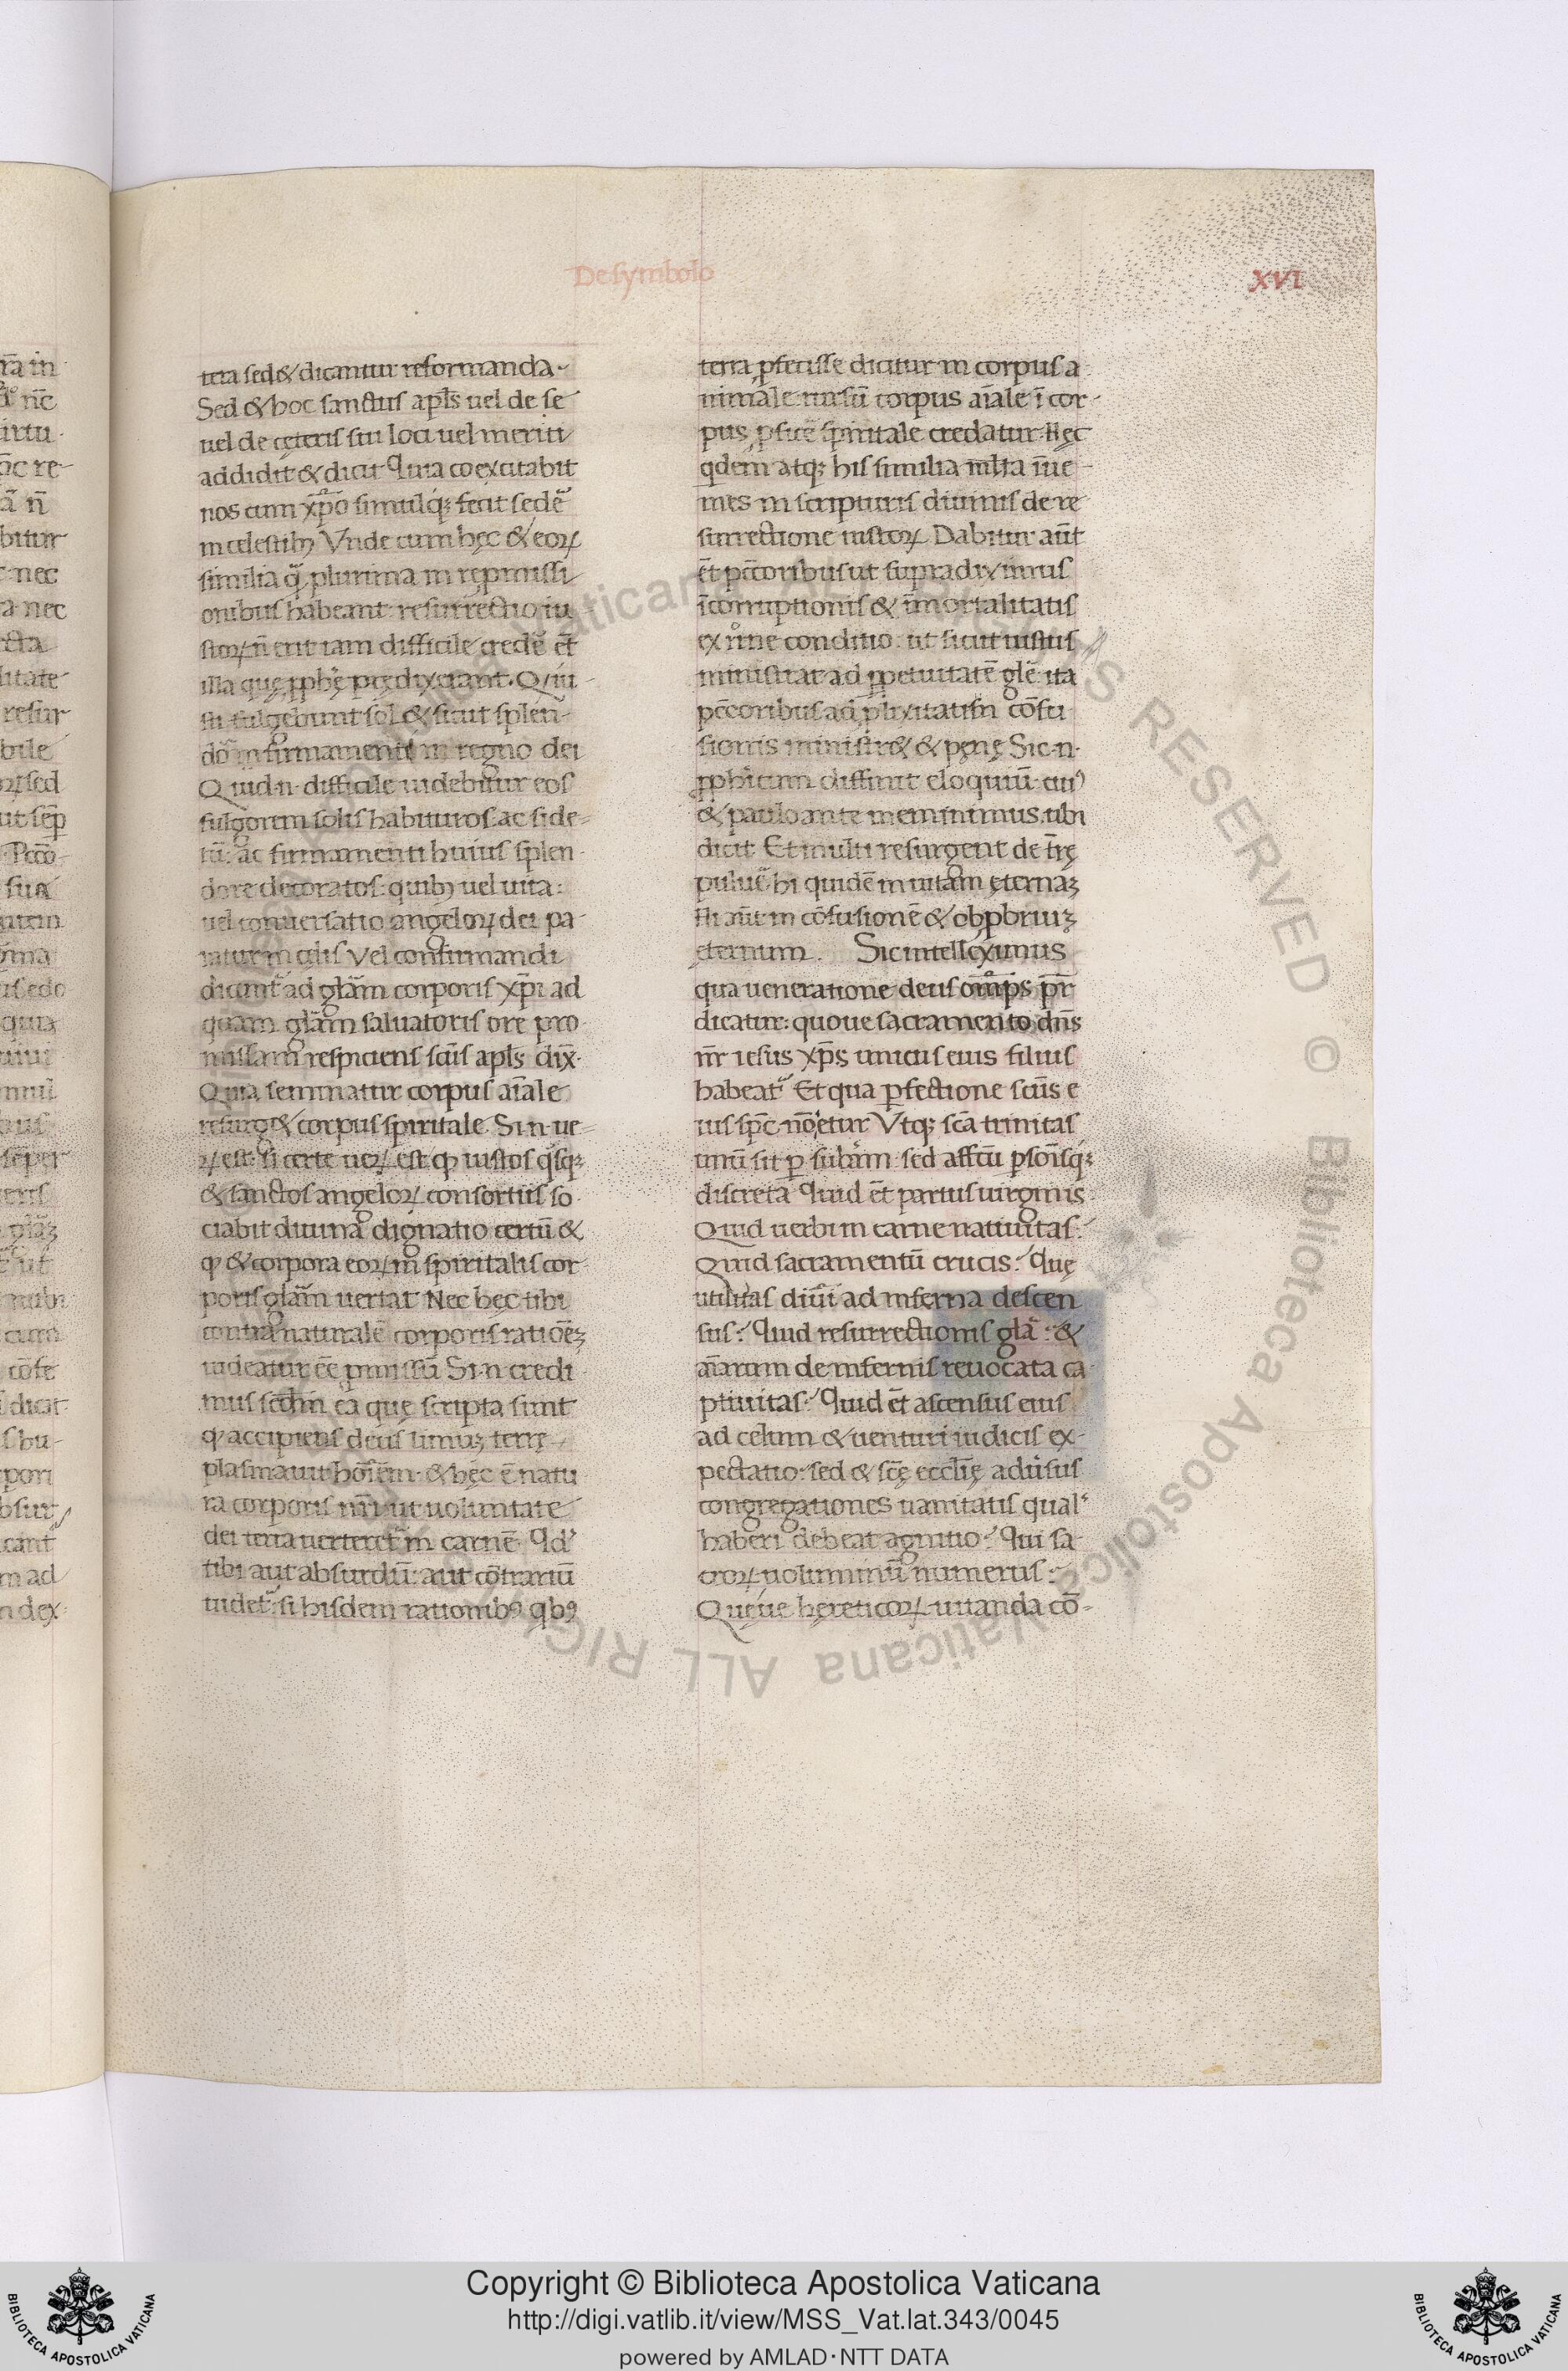 De symbolo
XVI
tera sed & dicantur reformanda.
Sed & hoc sanctus apl̃s uel de se
uel de cęteris sui loci uel meriti
addidit & dicit Quia coexcitabit
nos cum xp̃o simulq; fecit sedẽ
in celestib; Vnde cum hęc & eoꝝ
similia q̃ plurima in repmissi
onibus habeant: resurrectio iu
stoꝝ ñ erit iam difficile credẽ et̃
illa quę pphẽ prędixerant. Q iu
sti fulgebunt sol & sicut splen
dõ in firmamenti in regno dei
Quid .n. difficile uidebitur eos
fulgorem solis habituros: ac side
rũ: ac firmamenti huius splen
dore decoratos: quib; uel uita:
uel conuersatio angeloꝝ dei pa
ratur in cęlis Vel confirmandi
dicunt̃ ad glãm corporis xp̃i ad
quam glãm saluatoris ore pro
missam respiciens scũs apl̃s dix̃.
Quia seminatur corpus aĩale
resurg& corpus spiritale. Si .n. ue
ꝝ est: si certe ueꝝ est ꝙ iustos q̃sq;
& sanctos angeloꝝ consortiis so
ciabit diuina dignatio certũ &
ꝙ & corpora eoꝝ in spiritalis cor
poris glãm uertat Nec hęc tibi
contra naturalẽ corporis ratiõeʒ
uideatur eẽ pmissũ Si .n. credi
mus scdm̃ ea quę scripta sunt
ꝙ accipiens deus limuʒ terrę
plasmauit hoĩem: & hęc ẽ natu
ra corporis nr̃i ut uoluntate
dei terra uerteret̃ in carnẽ. Qd
tibi aut absurdũ: aut cõtrariũ
uidet̃: si hisdem rationibꝰ qbꝰ
terra pfecisse dicitur in corpus a
nimale: rursũ corpus aĩale ĩ cor
pus pficẽ spiritale credatur. Hęc
qdem atq; his similia ml̃ta ĩue
nies in scripturis diuinis de re
surrectione iustoꝝ Dabitur aũt
et̃ pcc̃oribus ut supra diximus
ĩcorruptionis & ĩmortalitatis
ex r̃ne conditio: ut sicut iustus
ministrat ad ppetuitatẽ glẽ: ita
pcc̃oribus ad plixitatem cõfu
sionis ministr& & pęnę Sic .n.
pphiticum diffinit eloquiũ: cuiꝰ
& paulo ante meminimus. ubi
dicit Et multi resurgent de tr̃ę
puluẽ: hi quidẽ in uitam ęternaʒ
illi aũt in cõfusionẽ & obpbriuʒ
ęternum. Sic intelleximus
qua ueneratione deus om̃ps pr̃
dicatur: quoue sacramento dñs
nr̃ iesus xp̃s unicus eius filius
habeat̃ Et qua pfectione scũs e
ius spc̃ nõetur Vtq; sc̃a trinitas
unũ sit p subãm: sed affctũ psoĩsq;
discreta Quid et̃ partus uirginis
Quid uerbi in carne natiuitas?
Quid sacramentũ crucis? Quę
utilitas diuĩ ad inferna descen
sus? Quid resurrectionis glã? &
aĩarum de infernis reuocata ca
ptiuitas? Quid et̃ ascensus eius
ad celum & uenturi iudicis ex
pectatio: sed & sc̃ę ecclĩę aduersus
congregationes uanitatis qual
haberi debeat agnitio? Qui sa
croꝝ uoluminũ numerus?
Quęue hereticoꝝ uitanda cõ
Copyright © Biblioteca Apostolica Vaticana
http://digi.vatlib.it/view/MSS_Vat.lat.343/0045
powered by AMLAD·NTT DATA